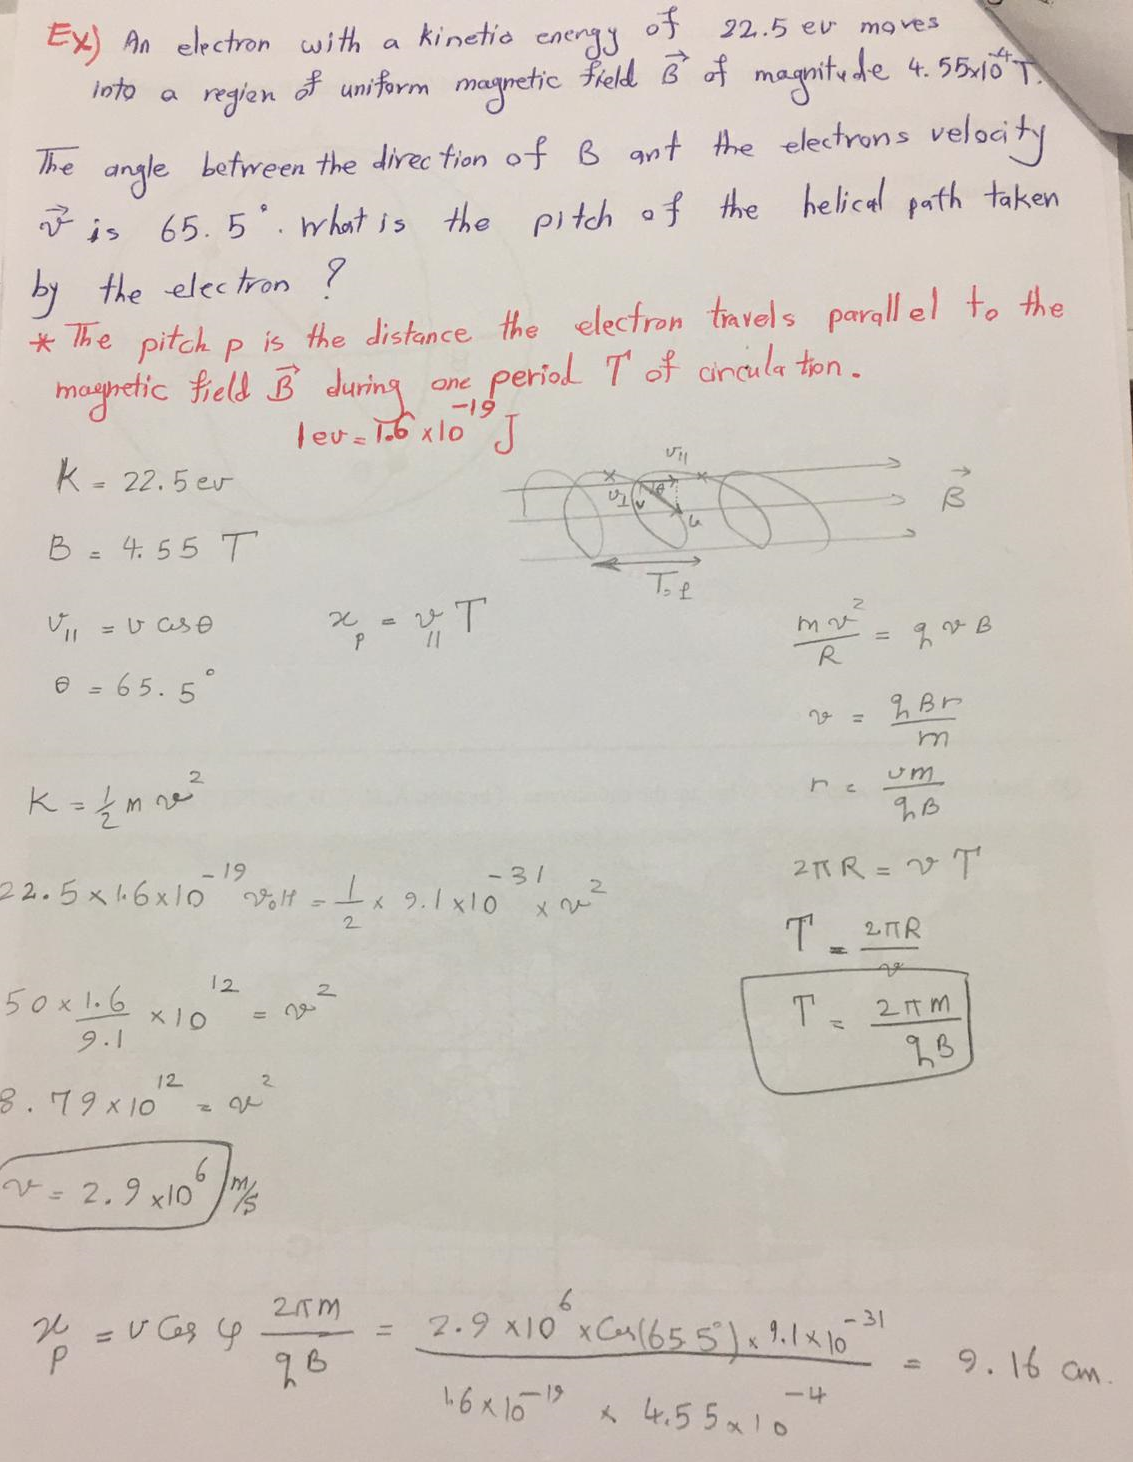 Ex) An electron with a kinetic energy of 22.5 ev moves
into a region of uniform magnetic field B⃗ of magnitude 4.55x10⁻⁴ T.
The angle between the direction of B ant the electrons velocity
v⃗ is 65.5°. What is the pitch of the helical path taken
by the electron ?
* The pitch p is the distance the electron travels parallel to the
magnetic field B⃗ during one period T of circulation.
1 ev = 1.6 x10⁻¹⁹ J
K = 22.5 ev
B = 4.55 T
v∥ = v cosθ
θ = 65.5°
x_p = v∥ T
v∥
v⊥ v θ
B⃗
K = 1/2 m v²
22.5 x 1.6 x10⁻¹⁹ volt = 1/2 x 9.1 x10⁻³¹ x v²
50 x 1.6/9.1 x 10¹² = v²
8.79 x10¹² = v²
v = 2.9 x10⁶ m/s
mv²/R = q v B
v = qBr/m
r = vm/qB
2πR = v T
T = 2πR/v
T = 2πm/qB
x_p = v Cos φ 2πm/qB = 2.9 x10⁶ x Cos(65.5°) x 9.1 x 10⁻³¹ / 1.6 x 10⁻¹⁹ x 4.55 x 10⁻⁴ = 9.16 cm.